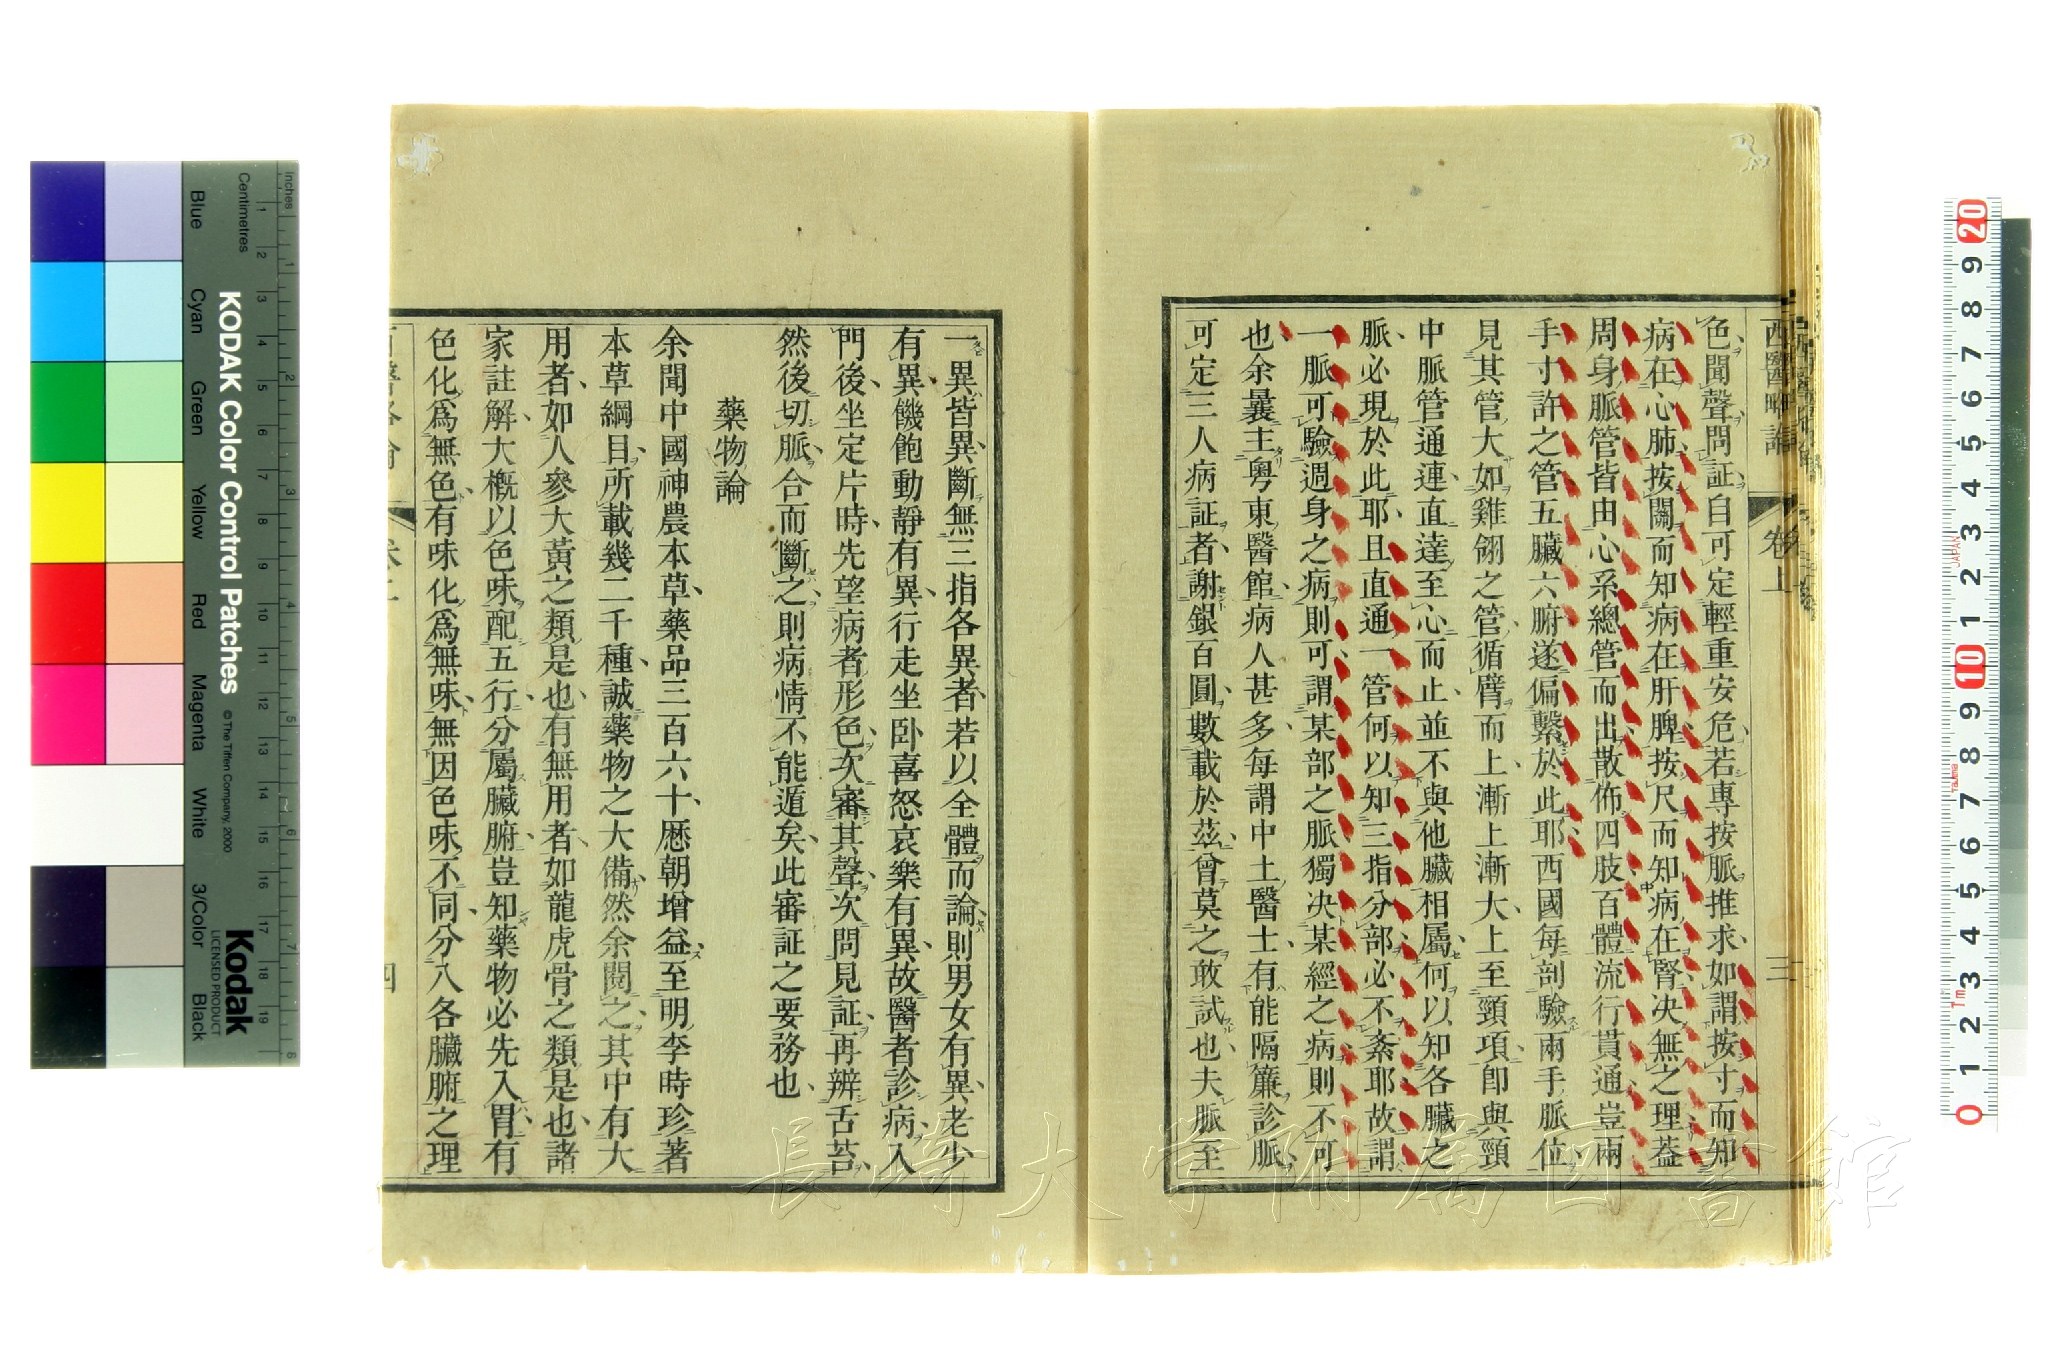 西醫略論
卷上
三
色聞聲問証自可定輕重安危若專按脈推求如謂按寸而知
病在心肺按關而知病在肝脾按尺而知病在腎决無之理葢
周身脈管皆由心系總管而出散佈四肢百體流行貫通豈兩
手寸許之管五臟六腑遂偏繫於此耶西國每剖驗兩手脈位
見其管大如雞翎之管循臂而上漸上漸大上至頸項卽與頸
中脈管通連直達至心而止並不與他臟相屬何以知各臟之
脈必現於此耶且直通一管何以知三指分部必不紊耶故謂
一脈可驗週身之病則可謂某部之脈獨决某經之病則不可
也余曩主粵東醫館病人甚多每謂中土醫士有能隔簾診脈
可定三人病証者謝銀百圓數載於茲曾莫之敢試也夫脈至
一異皆異斷無三指各異者若以全體而論則男女有異老少
有異饑飽動靜有異行走坐卧喜怒哀樂有異故醫者診病入
門後坐定片時先望病者形色次審其聲次問見証再辨舌苔
然後切脈合而斷之則病情不能遁矣此審証之要務也
藥物論
余聞中國神農本草藥品三百六十歷朝增益至明李時珍著
本草綱目所載幾二千種誠藥物之大備然余閱之其中有大
用者如人參大黃之類是也有無用者如龍虎骨之類是也諸
家註解大概以色味配五行分屬臟腑豈知藥物必先入胃有
色化爲無色有味化爲無味無因色味不同分入各臟腑之理
四
長崎大学附属図書館
KODAK Color Control Patches
© The Tiffen Company, 2000
Kodak
LICENSED PRODUCT
Inches
Centimetres
Blue
Cyan
Green
Yellow
Red
Magenta
White
3/Color
Black
1 2 3 4 5 6 7 8 9 10 11 12 13 14 15 16 17 18 19
1 2 3 4 5 6 7 8
20 9 8 7 6 5 4 3 2 1 10 9 8 7 6 5 4 3 2 1 0
JAPAN